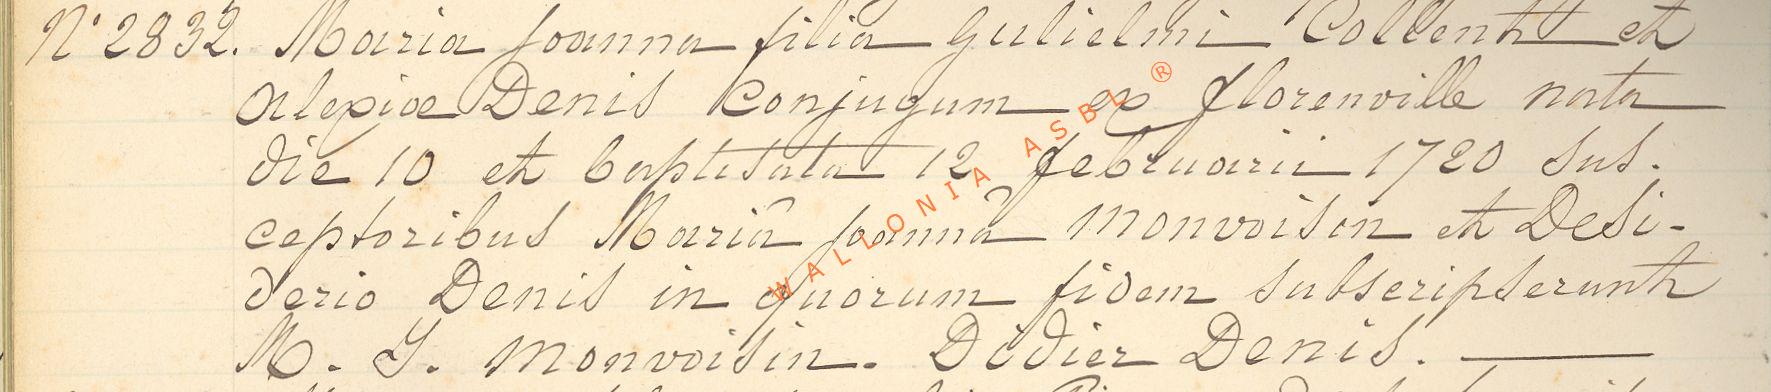 N° 2832. Maria Joanna filia Gulielmi Collent et
Alexiae Denis conjugum ex florenville nata
die 10 et baptisata 12 februarii 1720 sus.
ceptoribus Mariâ Joannâ Monvoisin et Desi-
derio Denis in quorum fidem subscripserunt
M. J. Monvoisin. Didier Denis.
WALLONIA ASBL ®